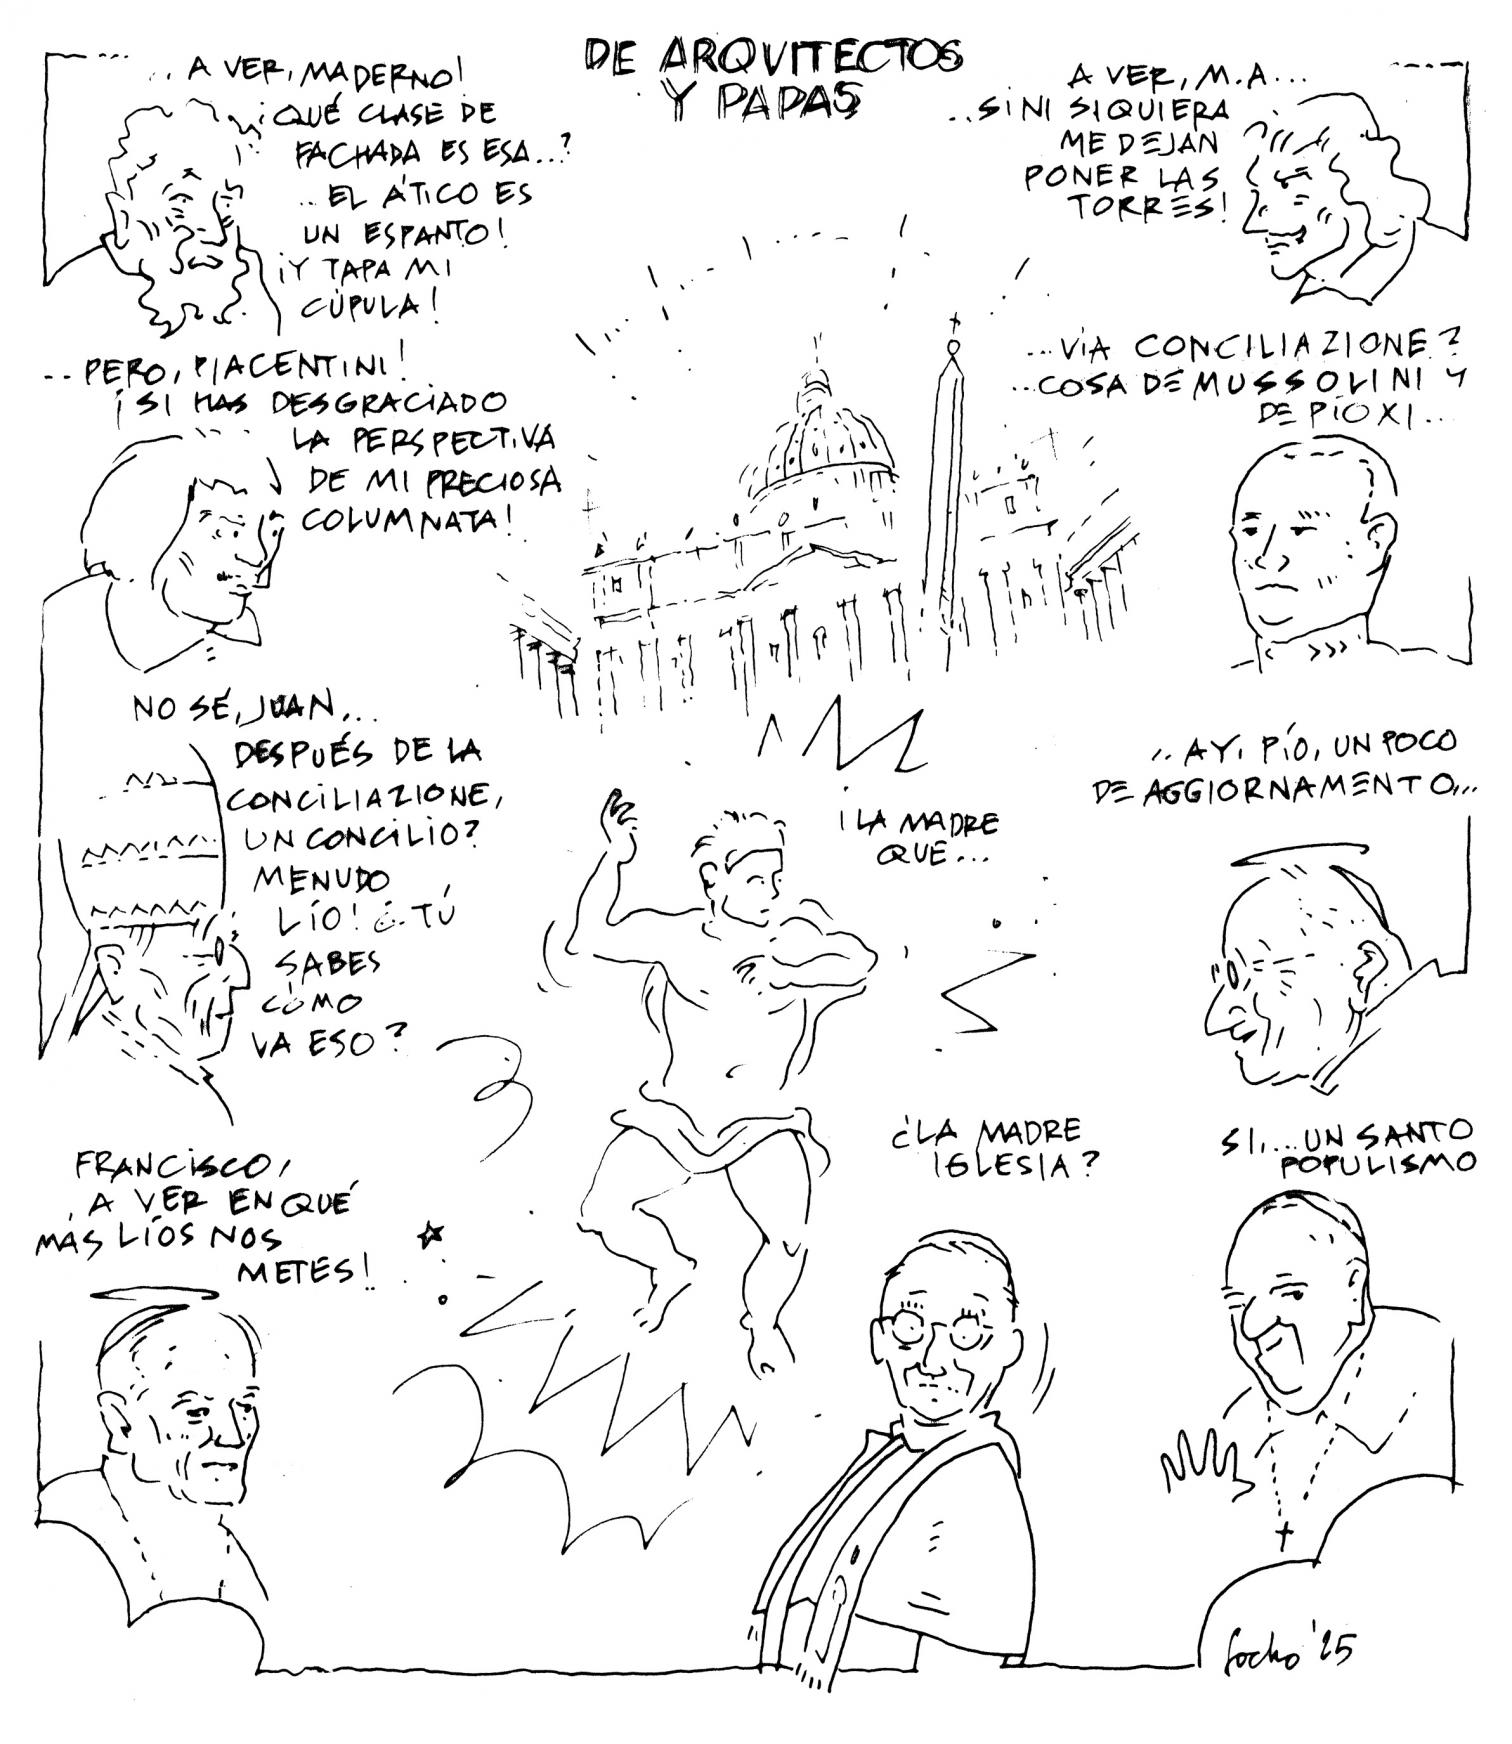 DE ARQUITECTOS
Y PAPAS
..A VER, MADERNO!
¡QUÉ CLASE DE
FACHADA ES ESA...?
..EL ÁTICO ES
UN ESPANTO!
¡Y TAPA MI
CÚPULA!
A VER, M.A...
..SI NI SIQUIERA
ME DEJAN
PONER LAS
TORRES!
..PERO, PIACENTINI!
¡SI HAS DESGRACIADO
LA PERSPECTIVA
DE MI PRECIOSA
COLUMNATA!
...VÍA CONCILIAZIONE?
..COSA DE MUSSOLINI Y
DE PÍO XI...
NO SÉ, JUAN,..
DESPUÉS DE LA
CONCILIAZIONE,
UN CONCILIO?
MENUDO
LÍO! ¿TÚ
SABES
CÓMO
VA ESO?
..AY, PÍO, UN POCO
DE AGGIORNAMENTO...
¡LA MADRE
QUE...
¿LA MADRE
IGLESIA?
FRANCISCO,
A VER EN QUÉ
MÁS LÍOS NOS
METES!
SI,...UN SANTO
POPULISMO
Socho '25